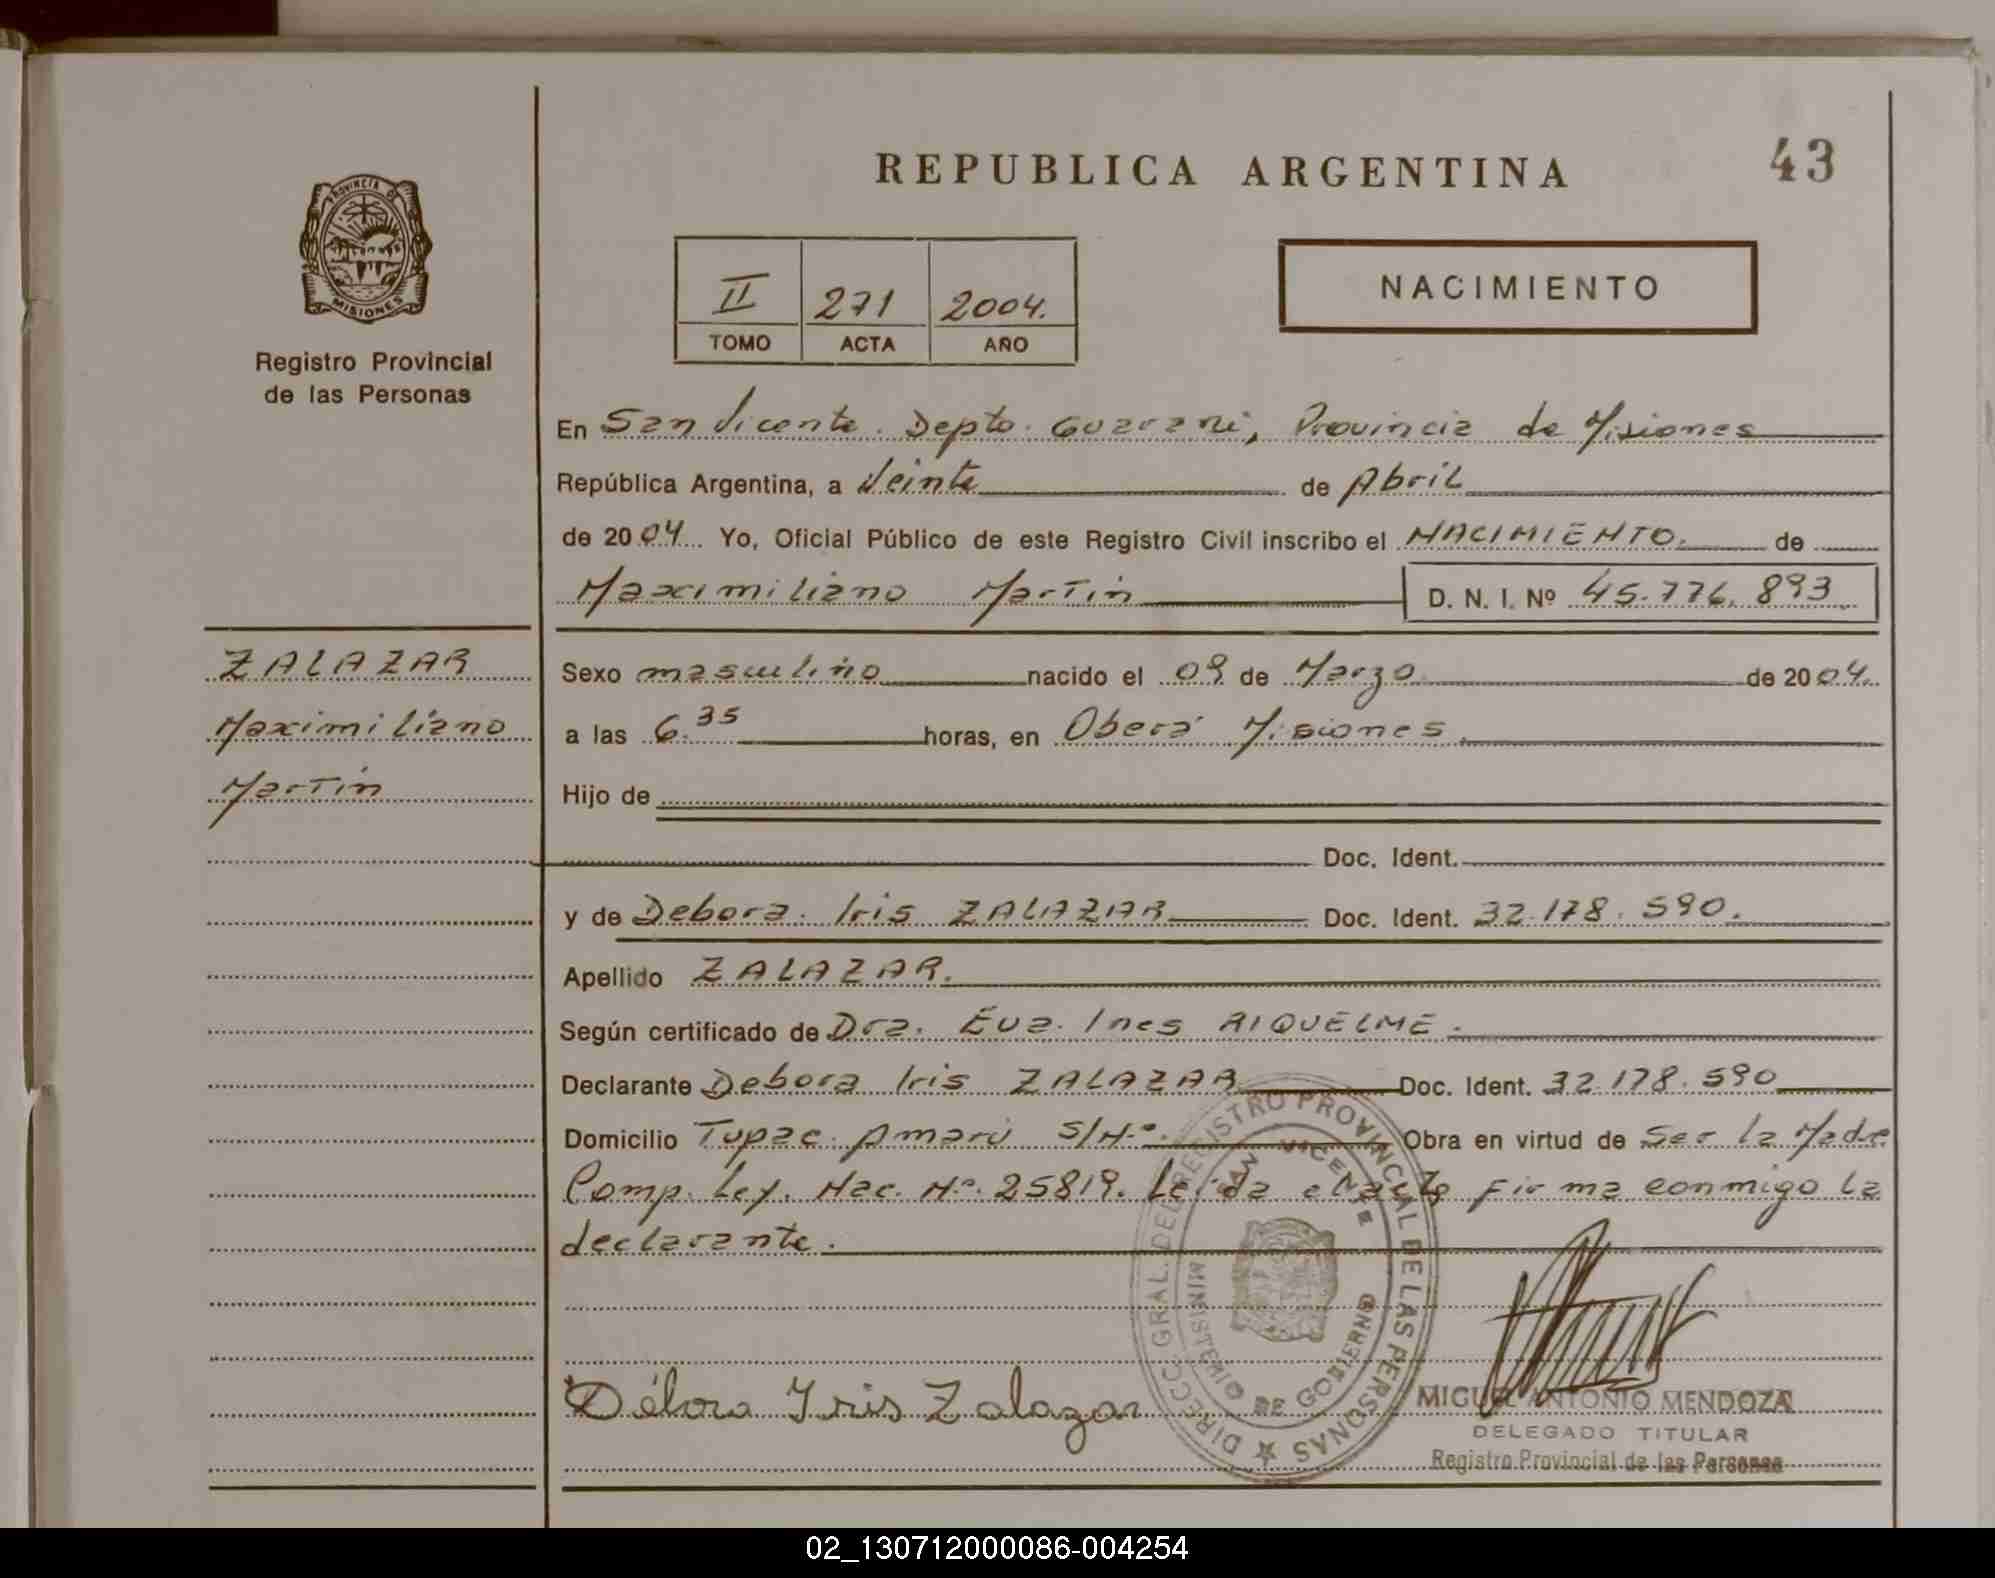 REPUBLICA ARGENTINA
43
PROVINCIA DE
MISIONES
Registro Provincial
de las Personas
II 271 2004.
TOMO ACTA AÑO
NACIMIENTO
En San Vicente. Depto. Guarani, Provincia de Misiones
República Argentina, a Veinte de Abril
de 2004 Yo, Oficial Público de este Registro Civil inscribo el NACIMIENTO. de
Maximiliano Martin D. N. I. Nº 45.776.893
ZALAZAR
Maximiliano
Martin
Sexo masculino nacido el 09 de Marzo de 2004.
a las 6.35 horas, en Oberá Misiones.
Hijo de
Doc. Ident.
y de Debora. Iris ZALAZAR Doc. Ident. 32.178.590.
Apellido ZALAZAR.
Según certificado de Dra. Eva. Ines RIQUELME.
Declarante Debora Iris ZALAZAR Doc. Ident. 32.178.590
Domicilio Tupac. Amarú S/Nº. Obra en virtud de Ser la Madre
Comp. Ley. Nac. Nº. 25819. Leida el acta firma conmigo la
declarante.
DIRECC. GRAL. DEL REGISTRO PROVINCIAL DE LAS PERSONAS
SAN VICENTE
MINISTERIO DE GOBIERNO
Débora Iris Zalazar
MIGUEL ANTONIO MENDOZA
DELEGADO TITULAR
Registro Provincial de las Personas
02_130712000086-004254